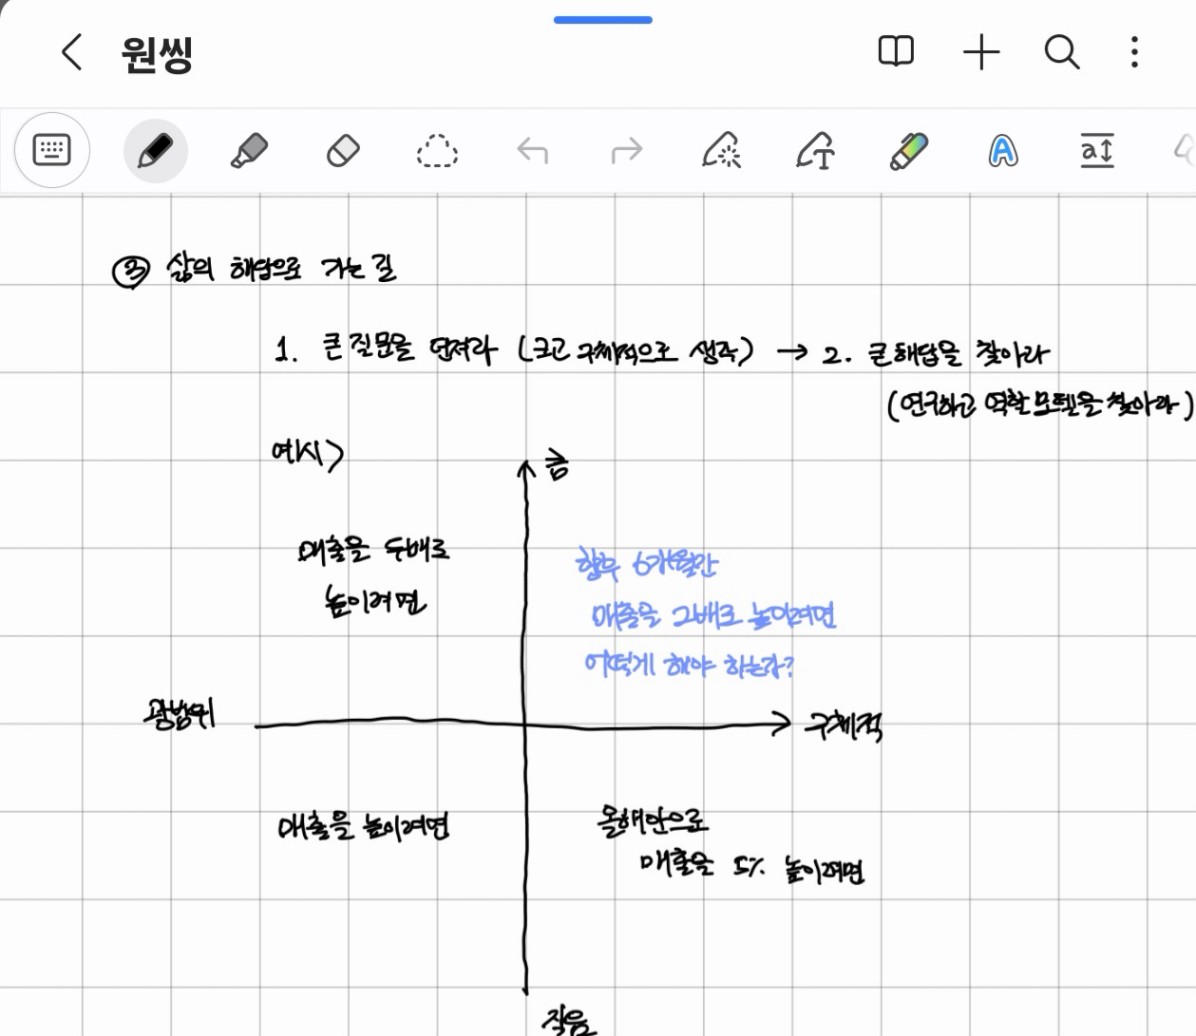 원씽
③ 삶의 해답으로 가는 길
1. 큰 질문을 던져라 (크고 구체적으로 생각) → 2. 큰 해답을 찾아라
(연구하고 역할모델을 찾아라)
예시>
큼
매출을 두배로
높이려면
향후 6개월간
매출을 2배로 높이려면
어떻게 해야 하는가?
광범위
구체적
매출을 높이려면
올해안으로
매출을 5% 높이려면
작음